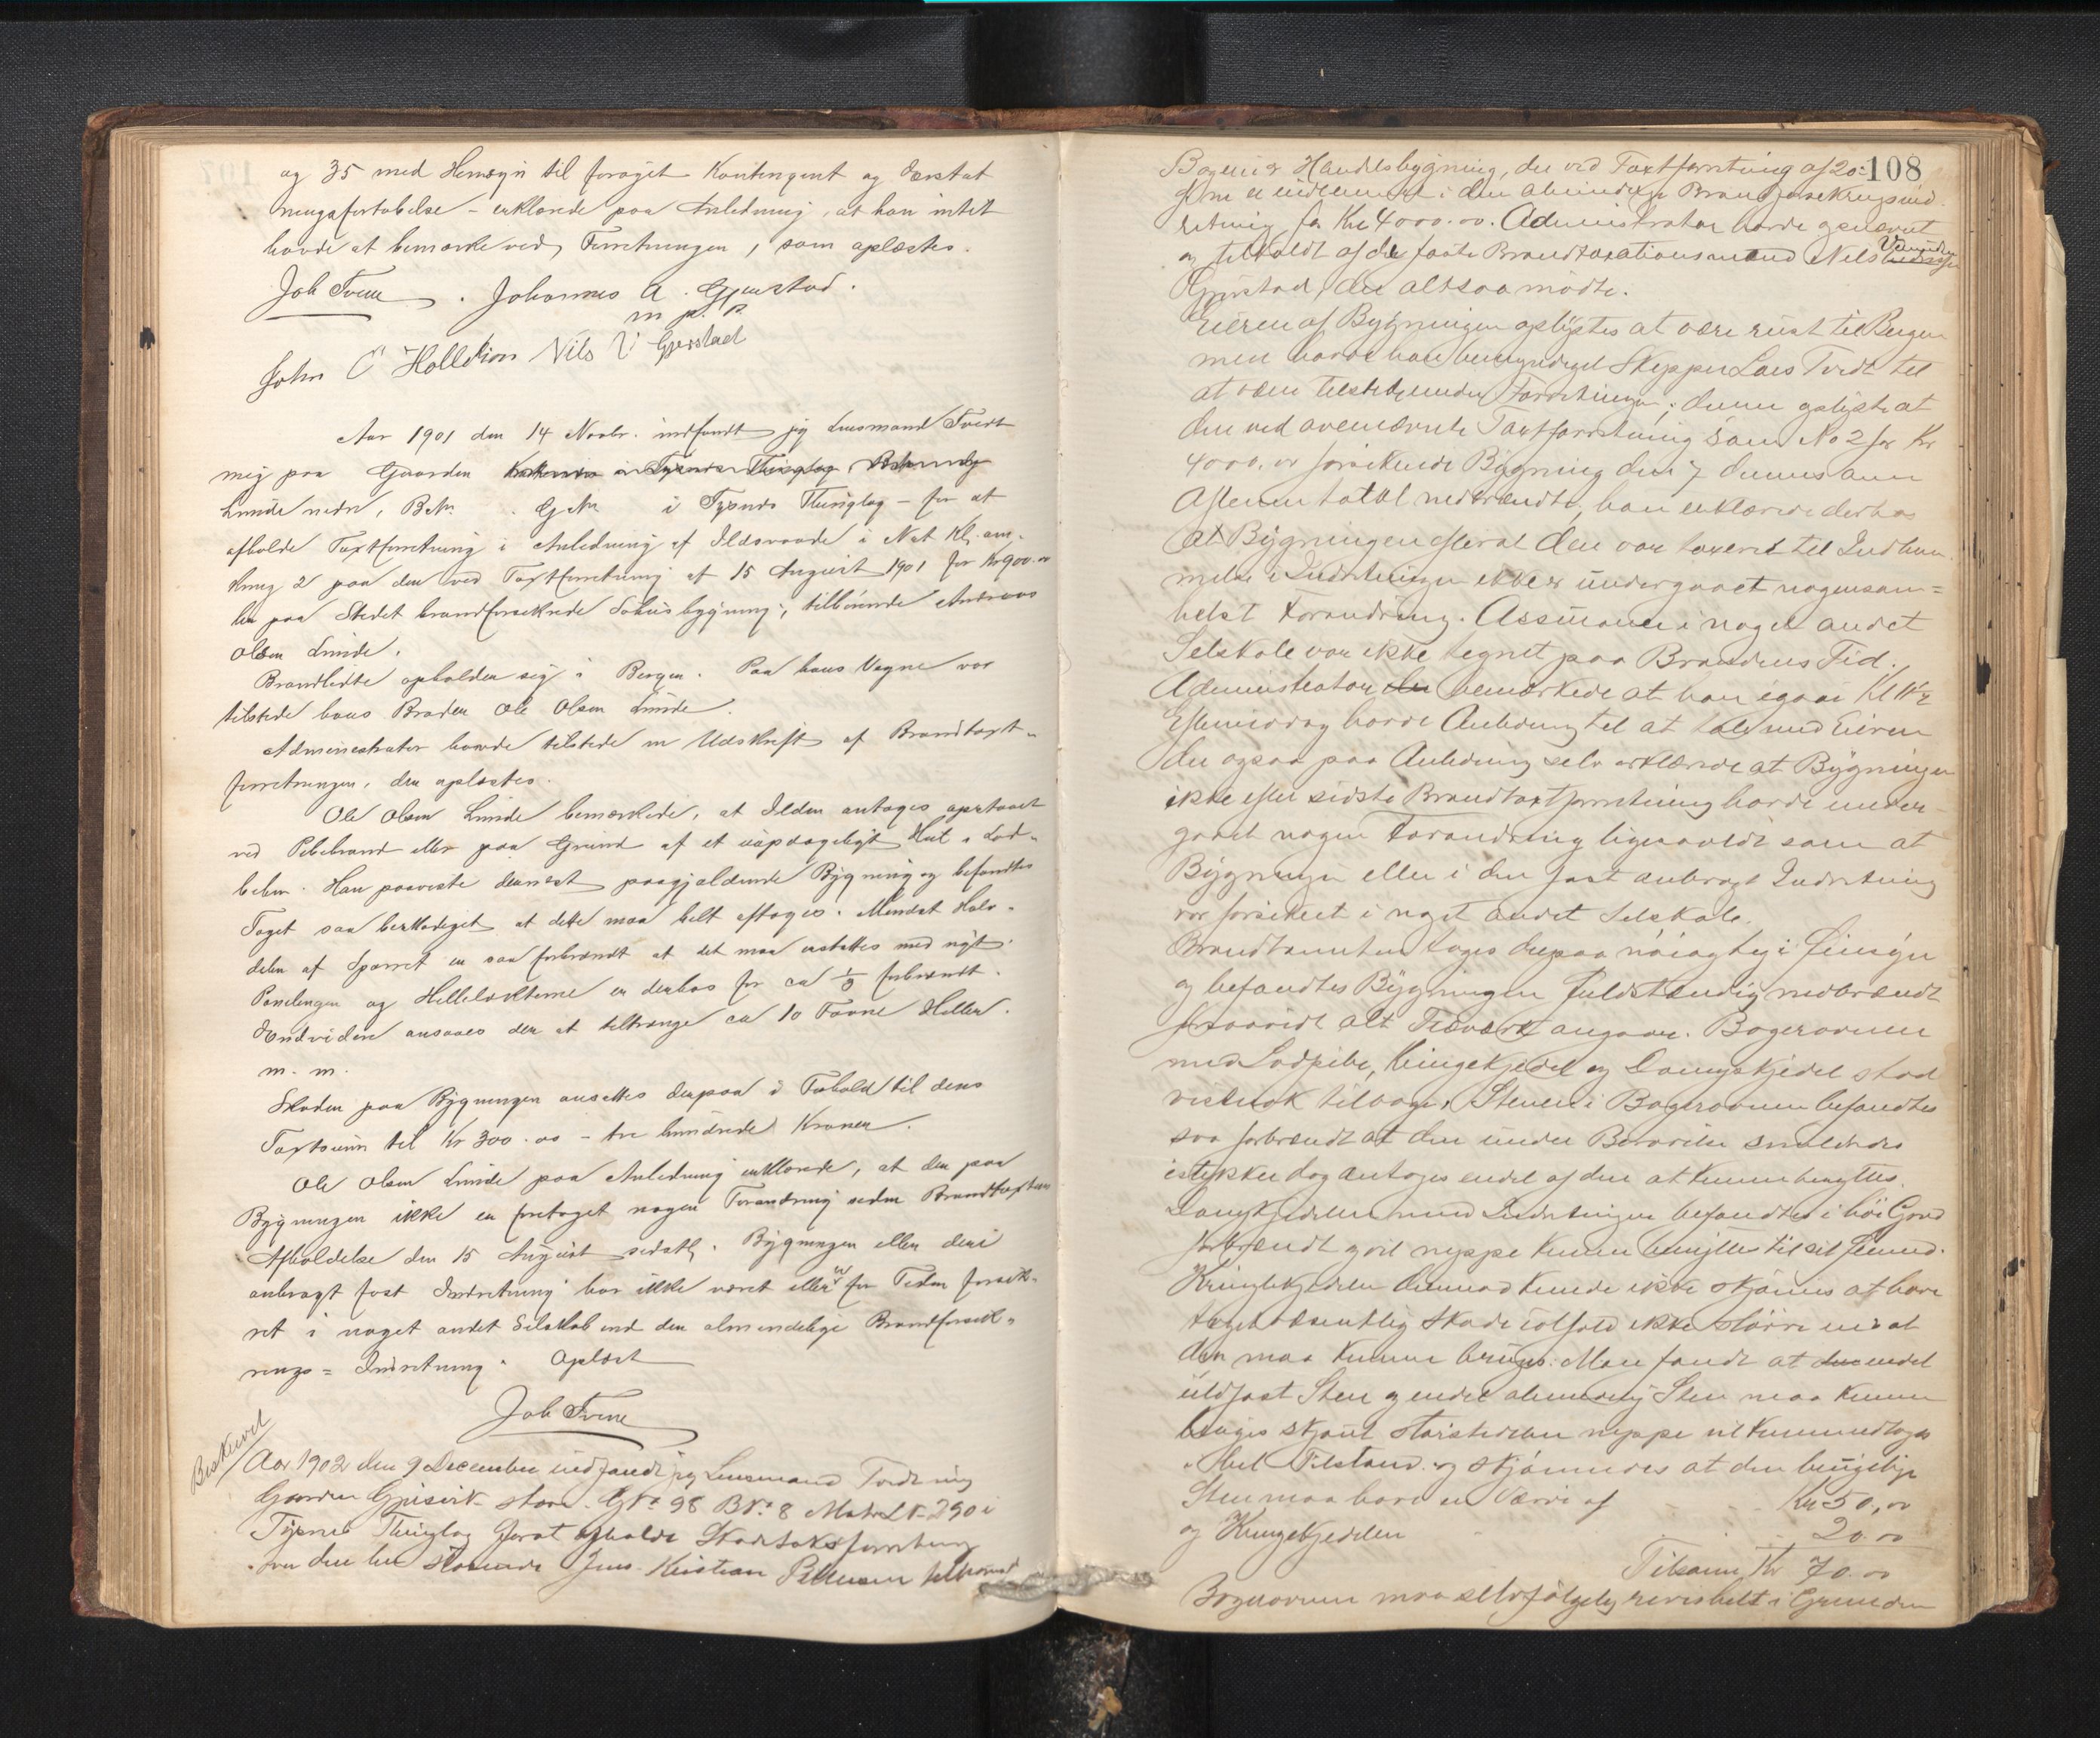 og 35 med Hensyn til forøget Kontingent og Erstat
ningsfortabelse – erklærede paa Anledning, at han intet
havde at bemærke ved Forretningen, som oplæstes.
Joh Tveit . Johannes A. Gjerstad.
m p. P.
John O Halldion Nils V Gjerstad
Aar 1901 den 14 Novbr. indfandt jeg Lensmand Tveit
mig paa Gaarden
Lunde nedre, BNr. GNr. i Tysnes Thinglag – for at
afholde Taxtforretning i Anledning af Ildsvaade i Nat Kl. om-
kring 2 paa den ved Taxtforretning af 15 August 1901 for Kr 900.00
her paa Stedet brandforsikrede Søhusbygning, tilhørende Andreas
Olsen Lunde.
Brandlidte opholder sig i Bergen. Paa hans Vegne var
tilstede hans Broder Ole Olsen Lunde.
Administrator havde tilstede en Udskrift af Brandtaxt-
forretningen, den oplæstes.
Ole Olsen Lunde bemærkede, at Ilden antages opstaaet
ved Pibebrand eller paa Grund af et uopdageligt Hul i Lod-
beben. Han paaviste dernæst paagjældende Bygning og befandtes
Taget saa beskadiget at dette maa helt aftages. Mindst Halv-
delen af Sperret er saa forbrændt at det maa erstattes med nyt.
Panelingen og Hellelægterne er derhos for ca 1/3 forbrændt.
Endvidere ansaaes der at tiltrænge ca 10 Favne Heller.
m. m.
Skaden paa Bygningen ansattes derpaa i Forhold til dens
Taxtsum til Kr 300.00 – tre hundrede Kroner.
Ole Olsen Lunde paa Anledning erklærede, at der paa
Bygningen ikke er foretaget nogen Forandring siden Brandtaxtens
Afholdelse den 15 August sidstl. Bygningen eller deri
anbragt fast Indretning har ikke været eller er for Tiden forsik-
ret i noget andet Selskab end den almindelige Brandforsik-
rings= Indretning. Oplæst
Joh Tveit
Beskrevet
Aar 1902 den 9 December indfandt jeg Lensmand Tveit mig
Gaarden Gjersvik store GNr 98 BNr 8 MatrLNr 290 i
Tysnes Thinglag forat afholde Skadetaksforretning
over den her stående Jens Kristian Pettersen tilhørende
108
Bageri & Handelsbygning, der ved Taxtforretning af 20:
er indlemmet i den almindelige Brandforsikringsind
retning for Kr 4000.00. Administrator havde
og tilkaldt af de faste Brandtaxationsmænd Nils
Gjerstad, der altsaa mødte.
Eieren af Bygningen oplystes at være reist til Bergen
men havde han bemyndiget Skipper Lars Tveit til
at være tilstede under Forretningen; denne oplyste at
den ved ovennævnte Taxtforretning som No 2 for Kr
4000.00 forsikrede Bygning den 7 dennes om
Aftenen totalt nedbrændte, han erklærede derhos
at Bygningen efterat den var taxeret til Indlem
melse i Indretningen ikke er undergaaet nogensom=
helst Forandring. Assurance i noget andet
Selskab var ikke tegnet paa Brandens Tid.
Administrator bemærkede at han igaar Kl
Eftermiddag havde Anledning til at tale med Eieren
der ogsaa paa Anledning selv erklærede at Bygningen
ikke efter sidste Brandtaxtforretning havde under-
gaaet nogen Forandring ligesaavidt som at
Bygningen eller i den fast anbragt Indretning
var forsikret i noget andet Selskab.
Brandtomten toges derpaa nøiagtig i Øiesyn
og befandtes Bygningen fuldstændig nedbrændt
forsaavidt alt Træværk angaar. Bagerovnen
med Lodpibe, Kringlekjedel og Dampkjedel stod
vistnok tilbage, Stenen i Bagerovnen befandtes
saa forbrændt at den under Berørelse smuldrede
istykker dog antages endel af den at kunne benyttes.
Dampkjedelen med Indretningen befandtes i høi Grad
forbrændt og vil neppe kunne benyttes til sit Øiemed.
Kringlekjedelen derimod kunde ikke skjønnes at have
taget væsentlig Skade ialfald ikke større end at
den maa kunne bruges. Man fandt at endel
ildfast Sten og endel almindelig Sten maa kunne
bruges skjønt størstedelen neppe vil kunne udtages
i hel Tilstand og skjønnedes at den brugelige
Sten maa have en Værdi af Kr 50.00
og Kringlekjedelen 20.00
Tilsam. Kr 70.00
Bagerovnen maa selvfølgelig rives helt i Grunden